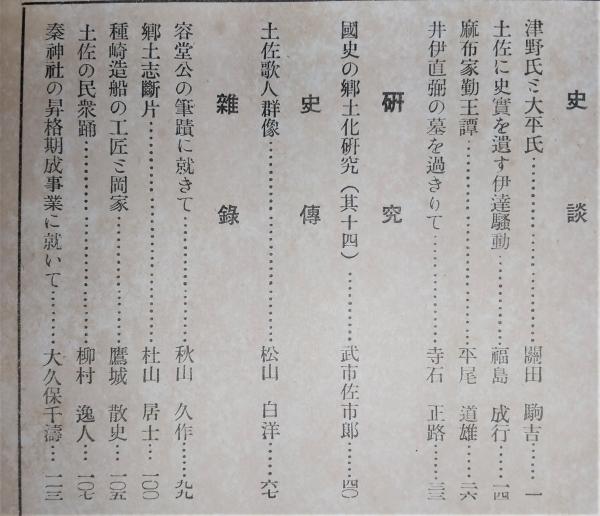 史談
津野氏と大平氏…………關田 駒吉……一
土佐に史實を遺す伊達騷動…………福島 成行……一四
麻布家勤王譚…………平尾 道雄……二六
井伊直弼の墓を過きりて…………寺石 正路……三三
硏究
國史の鄕土化硏究(其十四)…………武市佐市郎……四〇
史傳
土佐歌人群像…………松山 白洋……六七
雜錄
容堂公の筆蹟に就きて…………秋山 久作……九九
鄕土志斷片…………杜山 居士……一〇〇
種崎造船の工匠と岡家…………鷹城 散史……一〇五
土佐の民衆踊…………柳村 逸人……一〇七
秦神社の昇格期成事業に就いて…………大久保千濤……一一三